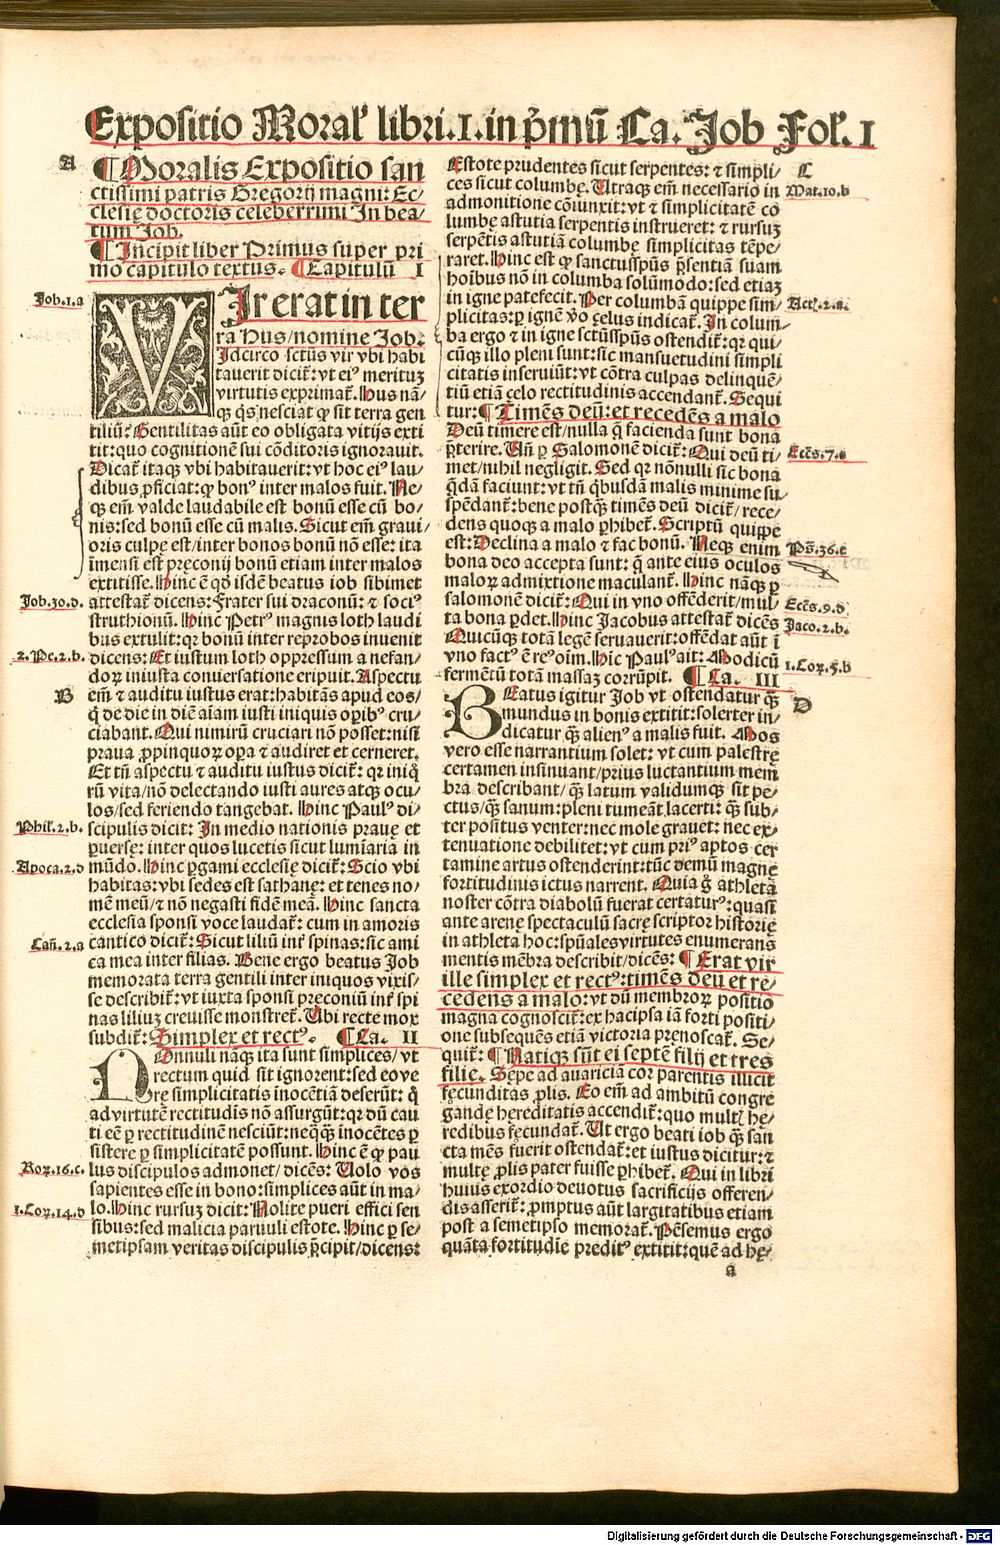 Expositio Moral' libri.1.in p̄mū Ca. Job Fol'.1
A
¶ Moralis Expositio san
ctissimi patris Gregorij magni: Ec/
clesię doctoris celeberrimi In bea/
tum Job.
¶ Incipit liber Primus super pri
mo capitulo textus. ¶ Capitulū I
Job.1.a
VIr erat in ter
ra Hus/nomine Job:
Idcirco sctūs vir vbi habi
tauerit dicit̄: vt ei⁹ merituꝫ
virtutis exprimat̄. Hus nā/
qꝫ q̄s nesciat ꝙ sit terra gen
tiliū? Gentilitas aūt eo obligata vitijs exti
tit: quo cognitionē sui cōditoris ignorauit.
Dicat̄ itaqꝫ vbi habitauerit: vt hoc ei⁹ lau/
dibus ꝓficiat: ꝙ bon⁹ inter malos fuit. Ne/
qꝫ em̄ valde laudabile est bonū esse cū bo/
nis: sed bonū esse cū malis. Sicut em̄ graui/
oris culpę est/inter bonos bonū nō esse: ita
īmensi est pręconij bonū etiam inter malos
extitisse. Hinc ē qd̓ isdē beatus iob sibimet
Job.30.d. attestat̄ dicens: Frater sui draconū: ⁊ soci⁹
struthionū. Hinc Petr⁹ magnis loth laudi
bus extulit: qꝛ bonū inter reprobos inuenit
2.Pe.2.b. dicens: Et iustum loth oppressum a nefan/
doꝝ iniusta conuersatione eripuit. Aspectu
B em̄ ⁊ auditu iustus erat: habitās apud eos/
q̄ de die in diē aīam iusti iniquis oꝑib⁹ cru/
ciabant. Qui nimirū cruciari nō posset: nisi
praua ꝓpinquoꝝ oꝑa ⁊ audiret et cerneret.
Et tn̄ aspectu ⁊ auditu iustus dicit̄: qꝛ iniq̄
rū vita/nō delectando iusti aures atqꝫ ocu/
los/sed feriendo tangebat. Hinc Paul⁹ di/
Phil'.2.b. scipulis dicit: In medio nationis prauę et
ꝑuersę: inter quos lucetis sicut lumīaria in
Apoca.2.d mūdo. Hinc ꝑgami ecclesię dicit̄: Scio vbi
habitas: vbi sedes est sathanę: et tenes no/
mē meū/⁊ nō negasti fidē meā. Hinc sancta
ecclesia sponsi voce laudat̄: cum in amoris
Cañ.2.a cantico dicit̄: Sicut liliū int̄ spinas: sic ami
ca mea inter filias. Bene ergo beatus Job
memorata terra gentili inter iniquos vixis/
se describit̄: vt iuxta sponsi pręconiū int̄ spi
nas liliuꝫ creuisse monstret̄. Ubi recte mox
subdit̄: Simplex et rect⁹. ¶ Ca. II
NOnnuli nāqꝫ ita sunt simplices/vt
rectum quid sit ignorent: sed eo ve
rę simplicitatis inocētiā deserūt: q̄
ad virtutē rectitudis nō assurgūt: qꝛ dū cau
ti eē ꝑ rectitudinē nesciūt: neq̄qꝫ inocētes ꝑ
sistere ꝑ simplicitatē possunt. Hinc ē ꝙ pau
Roꝝ.16.c. lus discipulos admonet/dicēs: Uolo vos
sapientes esse in bono: simplices aūt in ma/
1.Coꝝ.14.d lo. Hinc rursuꝫ dicit: Nolite pueri effici sen
sibus: sed malicia paruuli estote. Hinc ꝑ se/
metipsam veritas discipulis p̄cipit/dicens:
Estote prudentes sicut serpentes: ⁊ simpli/ C
ces sicut columbę. Utraqꝫ em̄ necessario in Mat.10.b
admonitione cōiunxit: vt ⁊ simplicitatē co
lumbę astutia serpentis instrueret: ⁊ rursuꝫ
serpētis astutiā columbę simplicitas tēpe/
raret. Hinc est ꝙ sanctusspūs p̄sentiā suam
hoībus nō in columba solūmodo: sed etiaꝫ
in igne patefecit. Per columbā quippe sim/ Act.2.a.
plicitas: ꝑ ignē v̄o ęelus indicat̄. In colum/
ba ergo ⁊ in igne sctūsspūs ostendit̄: qꝛ qui/
cūqꝫ illo pleni sunt: sic mansuetudini simpli
citatis inseruiūt: vt cōtra culpas delinquē/
tiū etiā ęelo rectitudinis accendant̄. Sequi
tur: ¶ Timēs deū: et recedēs a malo
Deū timere est/nulla q̄ facienda sunt bona
p̄terire. Uñ ꝑ Salomonē dicit̄: Qui deū ti/ Eccs.7.c
met/nihil negligit. Sed qꝛ nōnulli sic bona
q̄dā faciunt: vt tn̄ q̄busdā malis minime su/
spēdant̄: bene postqꝫ timēs deū dicit̄/rece/
dens quoqꝫ a malo ꝑhibet̄. Scriptū quippe
est: Declina a malo ⁊ fac bonū. Neqꝫ enim Ps̄.36.c
bona deo accepta sunt: q̄ ante eius oculos
maloꝝ admixtione maculant̄. Hinc nāqꝫ ꝑ
salomonē dicit̄: Qui in vno offēderit/mul/ Eccs.9.d
ta bona ꝑdet. Hinc Jacobus attestat̄ dicēs Jaco.2.b.
Quicūqꝫ totā legē seruauerit: offēdat aūt ī
vno fact⁹ ē re⁹ oīm. Hīc Paul⁹ ait: Modicū 1.Coꝝ.5.b
fermētū totā massaꝫ corrūpit. ¶ Ca. III
BEatus igitur Job vt ostendatur q̄ꝫ D
mundus in bonis extitit: solerter in/
dicatur q̄ꝫ alien⁹ a malis fuit. Mos
vero esse narrantium solet: vt cum palestrę
certamen insinuant/prius luctantium mem
bra describant/q̄ꝫ latum validumqꝫ sit pe/
ctus/q̄ꝫ sanum: pleni tumeāt lacerti: q̄ꝫ sub/
ter positus venter: nec mole grauet: nec ex/
tenuatione debilitet: vt cum pri⁹ aptos cer
tamine artus ostenderint: tūc demū magnę
fortitudinis ictus narrent. Quia g̊ athleta
noster cōtra diabolū fuerat certatur⁹: quasi
ante arenę spectaculū sacrę scriptor historię
in athleta hoc: spūales virtutes enumerans
mentis mēbra describit/dicēs: ¶ Erat vir
ille simplex et rect⁹: timēs deū et re/
cedens a malo: vt dū membroꝝ positio
magna cognoscit̄: ex hac ipsa iā forti positi/
one subsequēs etiā victoria prenoscat̄. Se/
quit̄: ¶ Natiqꝫ sūt ei septē filij et tres
filię. Sępe ad auariciā cor parentis illicit
fęcunditas ꝓlis. Eo em̄ ad ambitū congre
gandę hereditatis accendit̄: quo multꝭ hę/
redibus fęcundat̄. Ut ergo beati iob q̄ꝫ san
cta mēs fuerit ostendat̄: et iustus dicitur: ⁊
multę ꝓlis pater fuisse ꝑhibet̄. Qui in libri
huius exordio deuotus sacrificijs offeren/
dis asserit̄: ꝓmptus aūt largitatibus etiam
post a semetipso memorat̄. Pēsemus ergo
quāta fortitudīe predit⁹ extitit: quē ad hę/
a
Digitalisierung gefördert durch die Deutsche Forschungsgemeinschaft - DFG